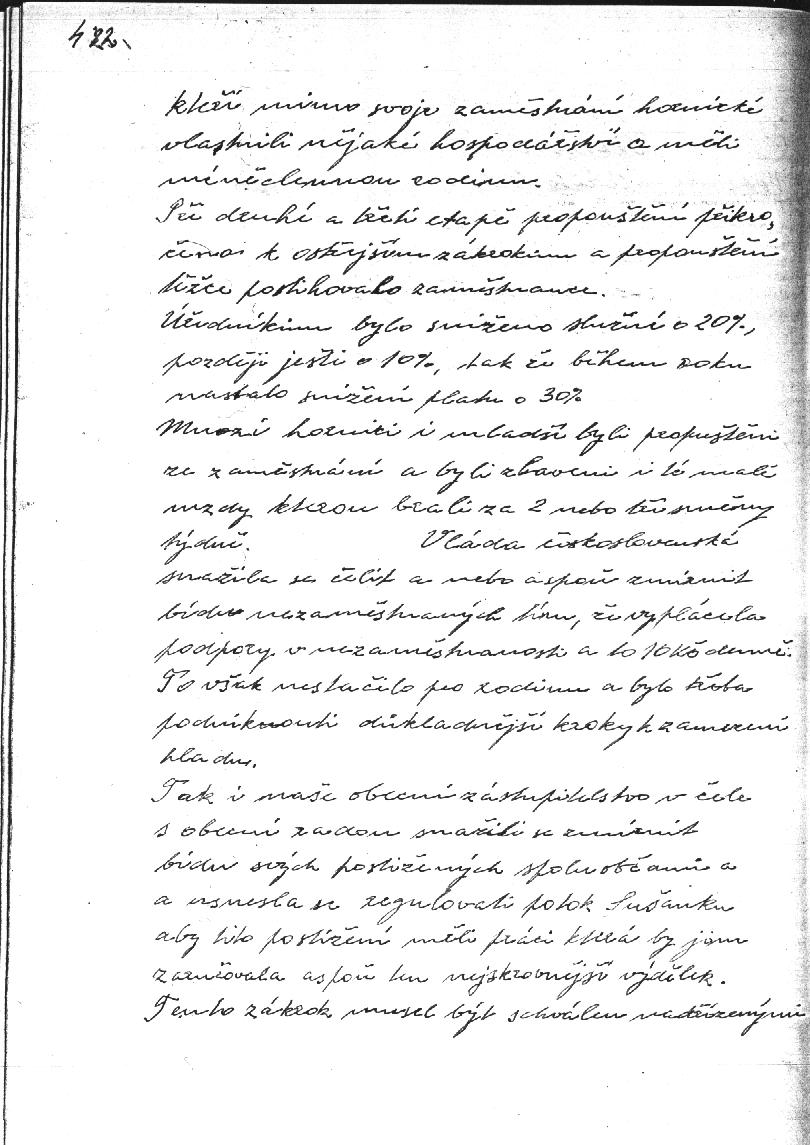 422.
kteří mimo svoje zaměstnání hornické
vlastnili nějaké hospodářství a měli
méněčlennou rodinu.
Při druhé a třetí etapě propouštění přikro,
čeno k ostřejším zákrokům a propouštění
těžce postihovalo zaměstnance.
Úředníkům bylo sníženo služné o 20%,
později ještě o 10%, tak že během roku
nastalo snížení platu o 30%
Mnozí horníci i mladší byli propuštěni
ze zaměstnání a byli zbaveni i té malé
mzdy kterou brali za 2 nebo tři směny
týdně. Vláda československá
snažila se čelit a nebo aspoň zmírnit
bídu nezaměstnaných tím, že vyplácela
podpory v nezaměstnanosti a to 10 Kč denně.
To však nestačilo pro rodinu a bylo třeba
podniknouti důkladnější kroky k zamezení
hladu.
Tak i naše obecní zastupitelstvo v čele
s obecní radou snažili se zmírnit
bídu svých postižených spoluobčanů a
a usnesla se regulovati potok Sušanku
aby tito postižení měli práci která by jim
zaručovala aspoň ten nejskrovnější výdělek.
Tento zákrok musel být schválen nadřízenými